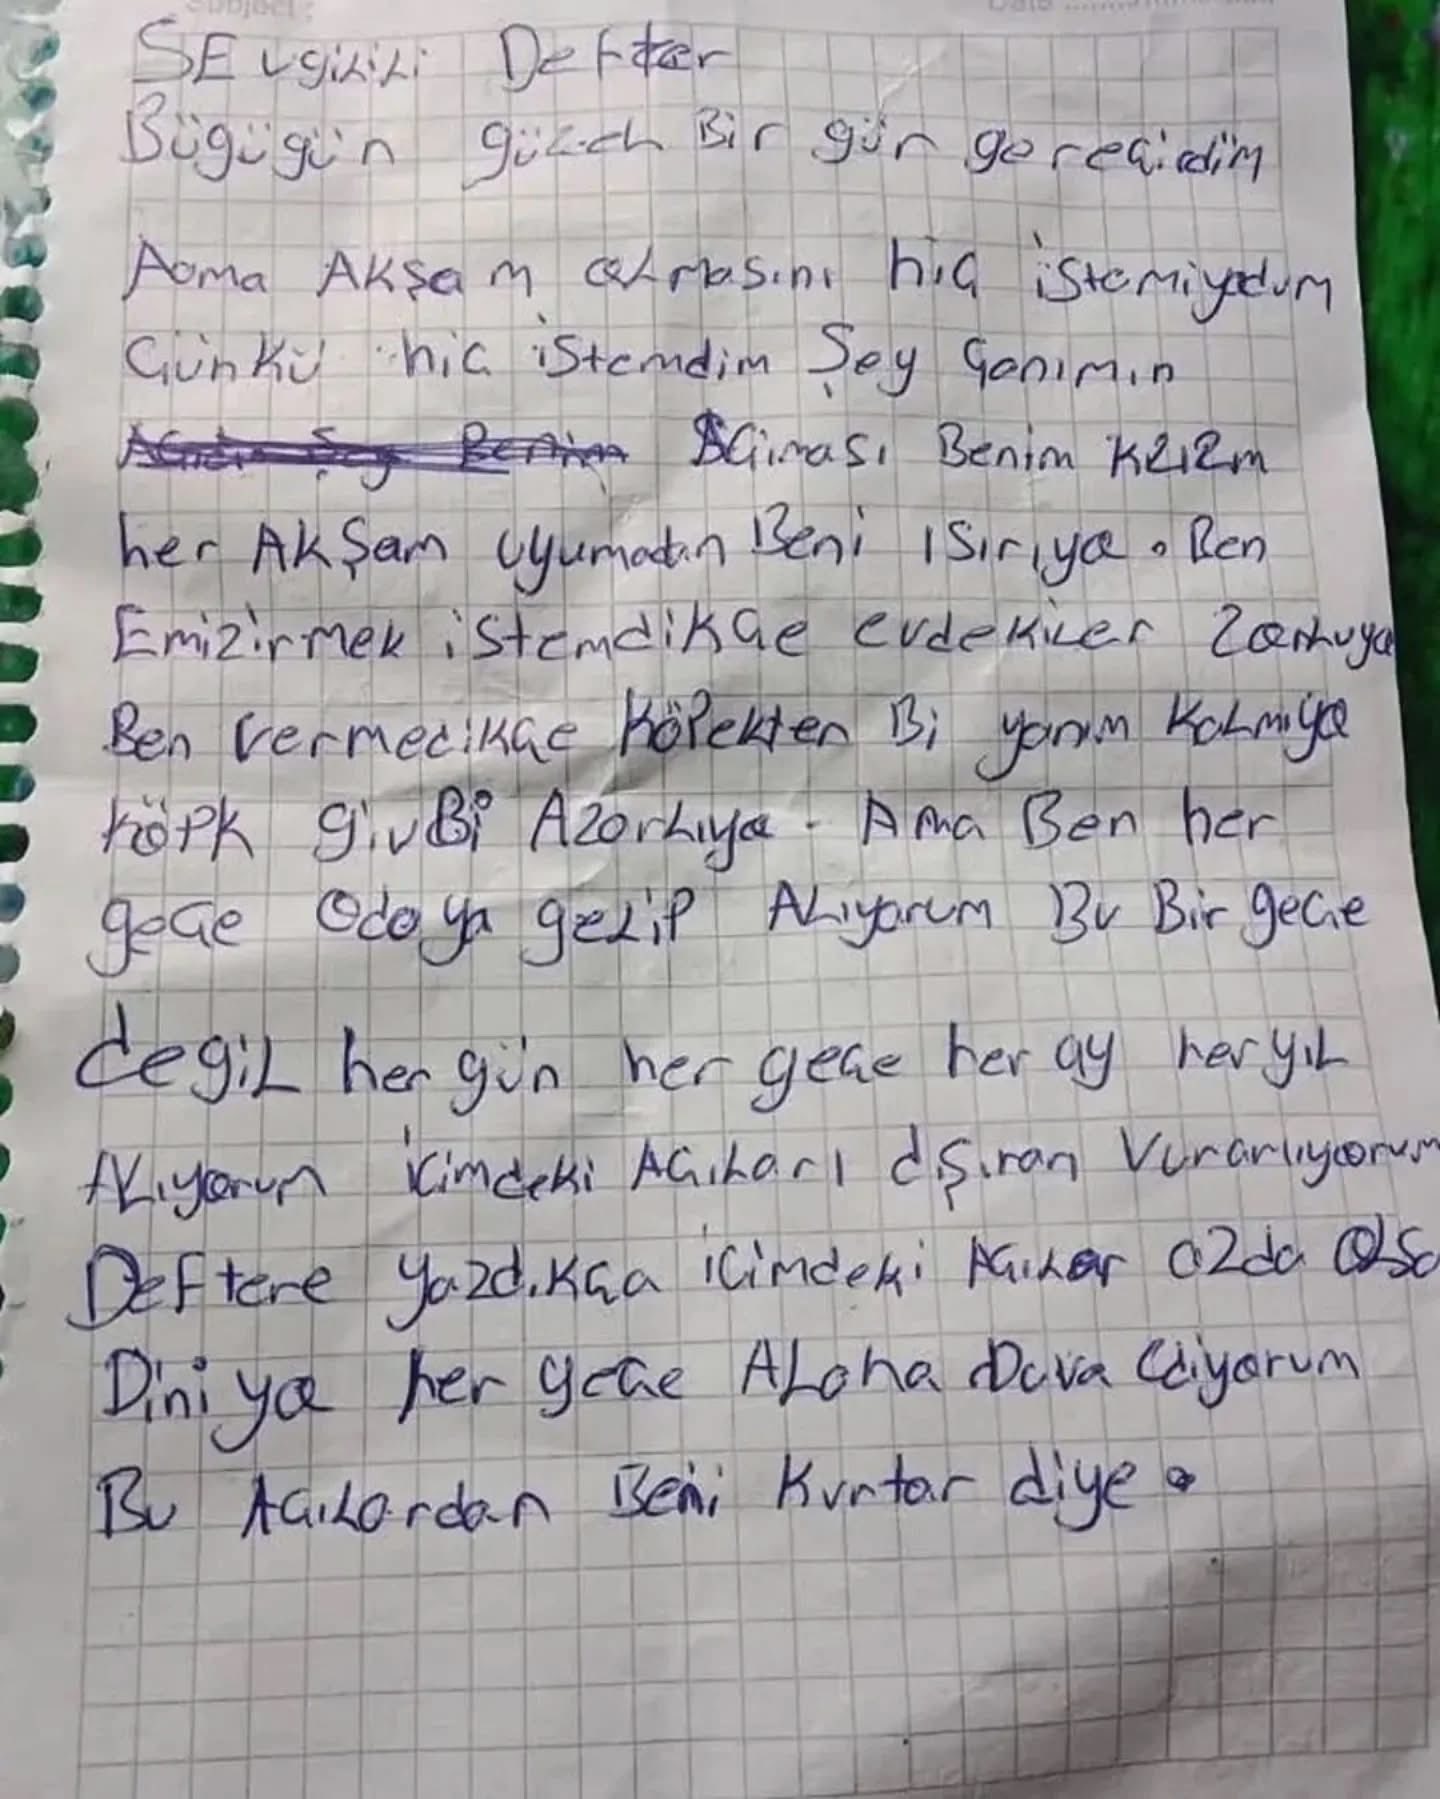 Subject:
Date
SEvgilili Defter
Bügügün güzel Bir gün gereçirdim
Aoma AKşam olmasını hiç istemiyodum
Günkü hiç istemdim Şey Canımın
Acıması Benim Kızızm
her AKŞam uyumadan Beni ısırıya. Ben
Emizirmek istemdikçe evdekiler Zorluya
Ben vermecikçe Köpekten Bi yanım Kalmıya
Köpk givBi Azorlıya. Ama Ben her
gece Odaya gelip Alıyorum Bu Bir gece
degil her gün her gece her ay her yıl
ALıyorum içimdeki Acıları dışıran Vurarlıyorum
Deftere yazdıkça içimdeki Acılar azda Olsa
Diniya her gece ALaha Duva Ediyorum
Bu Acılardan Beni Kurtar diye.